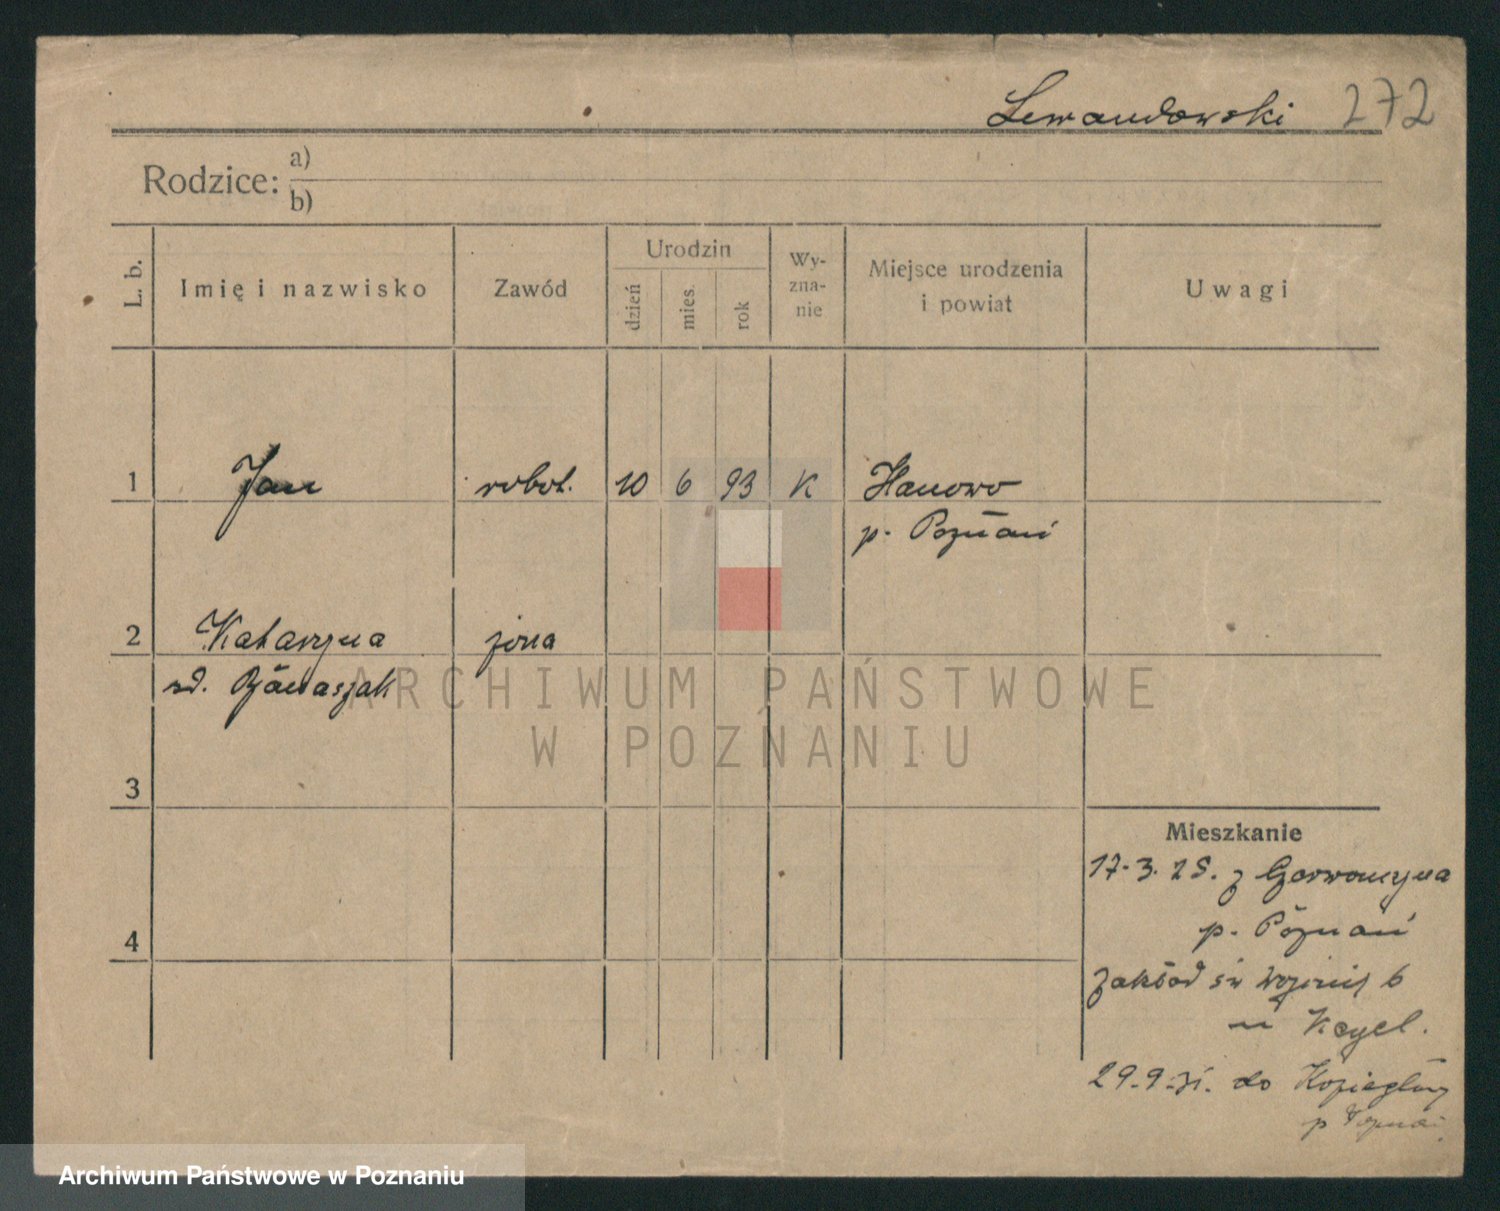 Lewandowski 272
Rodzice: a)
b)
L. b.
Imię i nazwisko
Zawód
Urodzin
dzień
mies.
rok
Wy-
zna-
nie
Miejsce urodzenia
i powiat
Uwagi
1 Jan robot. 10 6 93 K Hanowo
p. Poznań
2 Katarzyna żona
ARCHIWUM PAŃSTWOWE
W POZNANIU
3
Mieszkanie
17.3.25. z
p. Poznań
4
Zakład św
29.9.31. do Koziegłowy
p Poznań
Archiwum Państwowe w Poznaniu